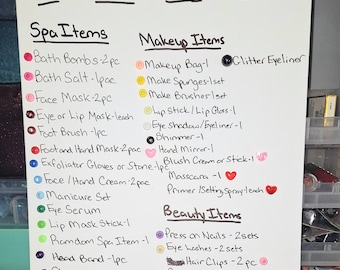 Spa Items
Bath Bombs - 2pc
Bath Salt - 1pac
Face Mask - 2pc
Eye or Lip Mask - 1each
Foot Brush - 1pc
Foot and Hand Mask - 2pac
Exfoliator Gloves or Stone - 1pc
Face / Hand Cream - 2pc
Manicure Set
Eye Serum
Lip Mask Stick - 1
Ramdom Spa Item - 1
Head Band - 1pc
Makeup Items
Makeup Bag - 1
Make Sponges - 1set
Make Brushes - 1set
Lip Stick / Lip Gloss - 1
Eye Shadow / Eyeliner - 1
Shimmer - 1
Hand Mirror - 1
Blush Cream or Stick - 1
Masscara - 1
Primer / Setting Spray - 1each
Glitter Eyeliner
Beauty Items
Press on Nails - 2sets
Eye Lashes - 2sets
Hair Clips - 2pc